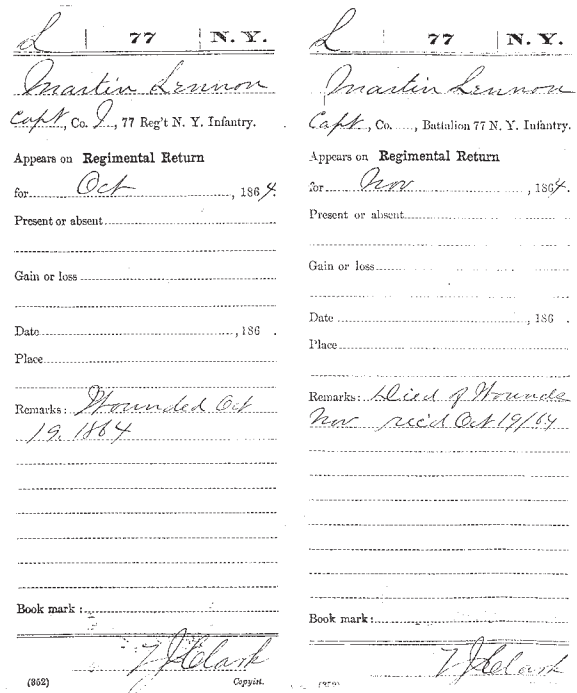 L | 77 | N. Y.
Martin Lennon
Capt, Co. I, 77 Reg't N. Y. Infantry.
Appears on Regimental Return
for Oct, 1864.
Present or absent
Gain or loss
Date, 186 .
Place
Remarks: Wounded Oct
19. 1864
Book mark:
Clark
(352) Copyist.
L | 77 | N. Y.
Martin Lennon
Capt, Co. , Battalion 77 N. Y. Infantry.
Appears on Regimental Return
for Nov, 1864.
Present or absent
Gain or loss
Date, 186 .
Place
Remarks: Died of Wounds
Nov rec'd Oct 19/64
Book mark:
Clark